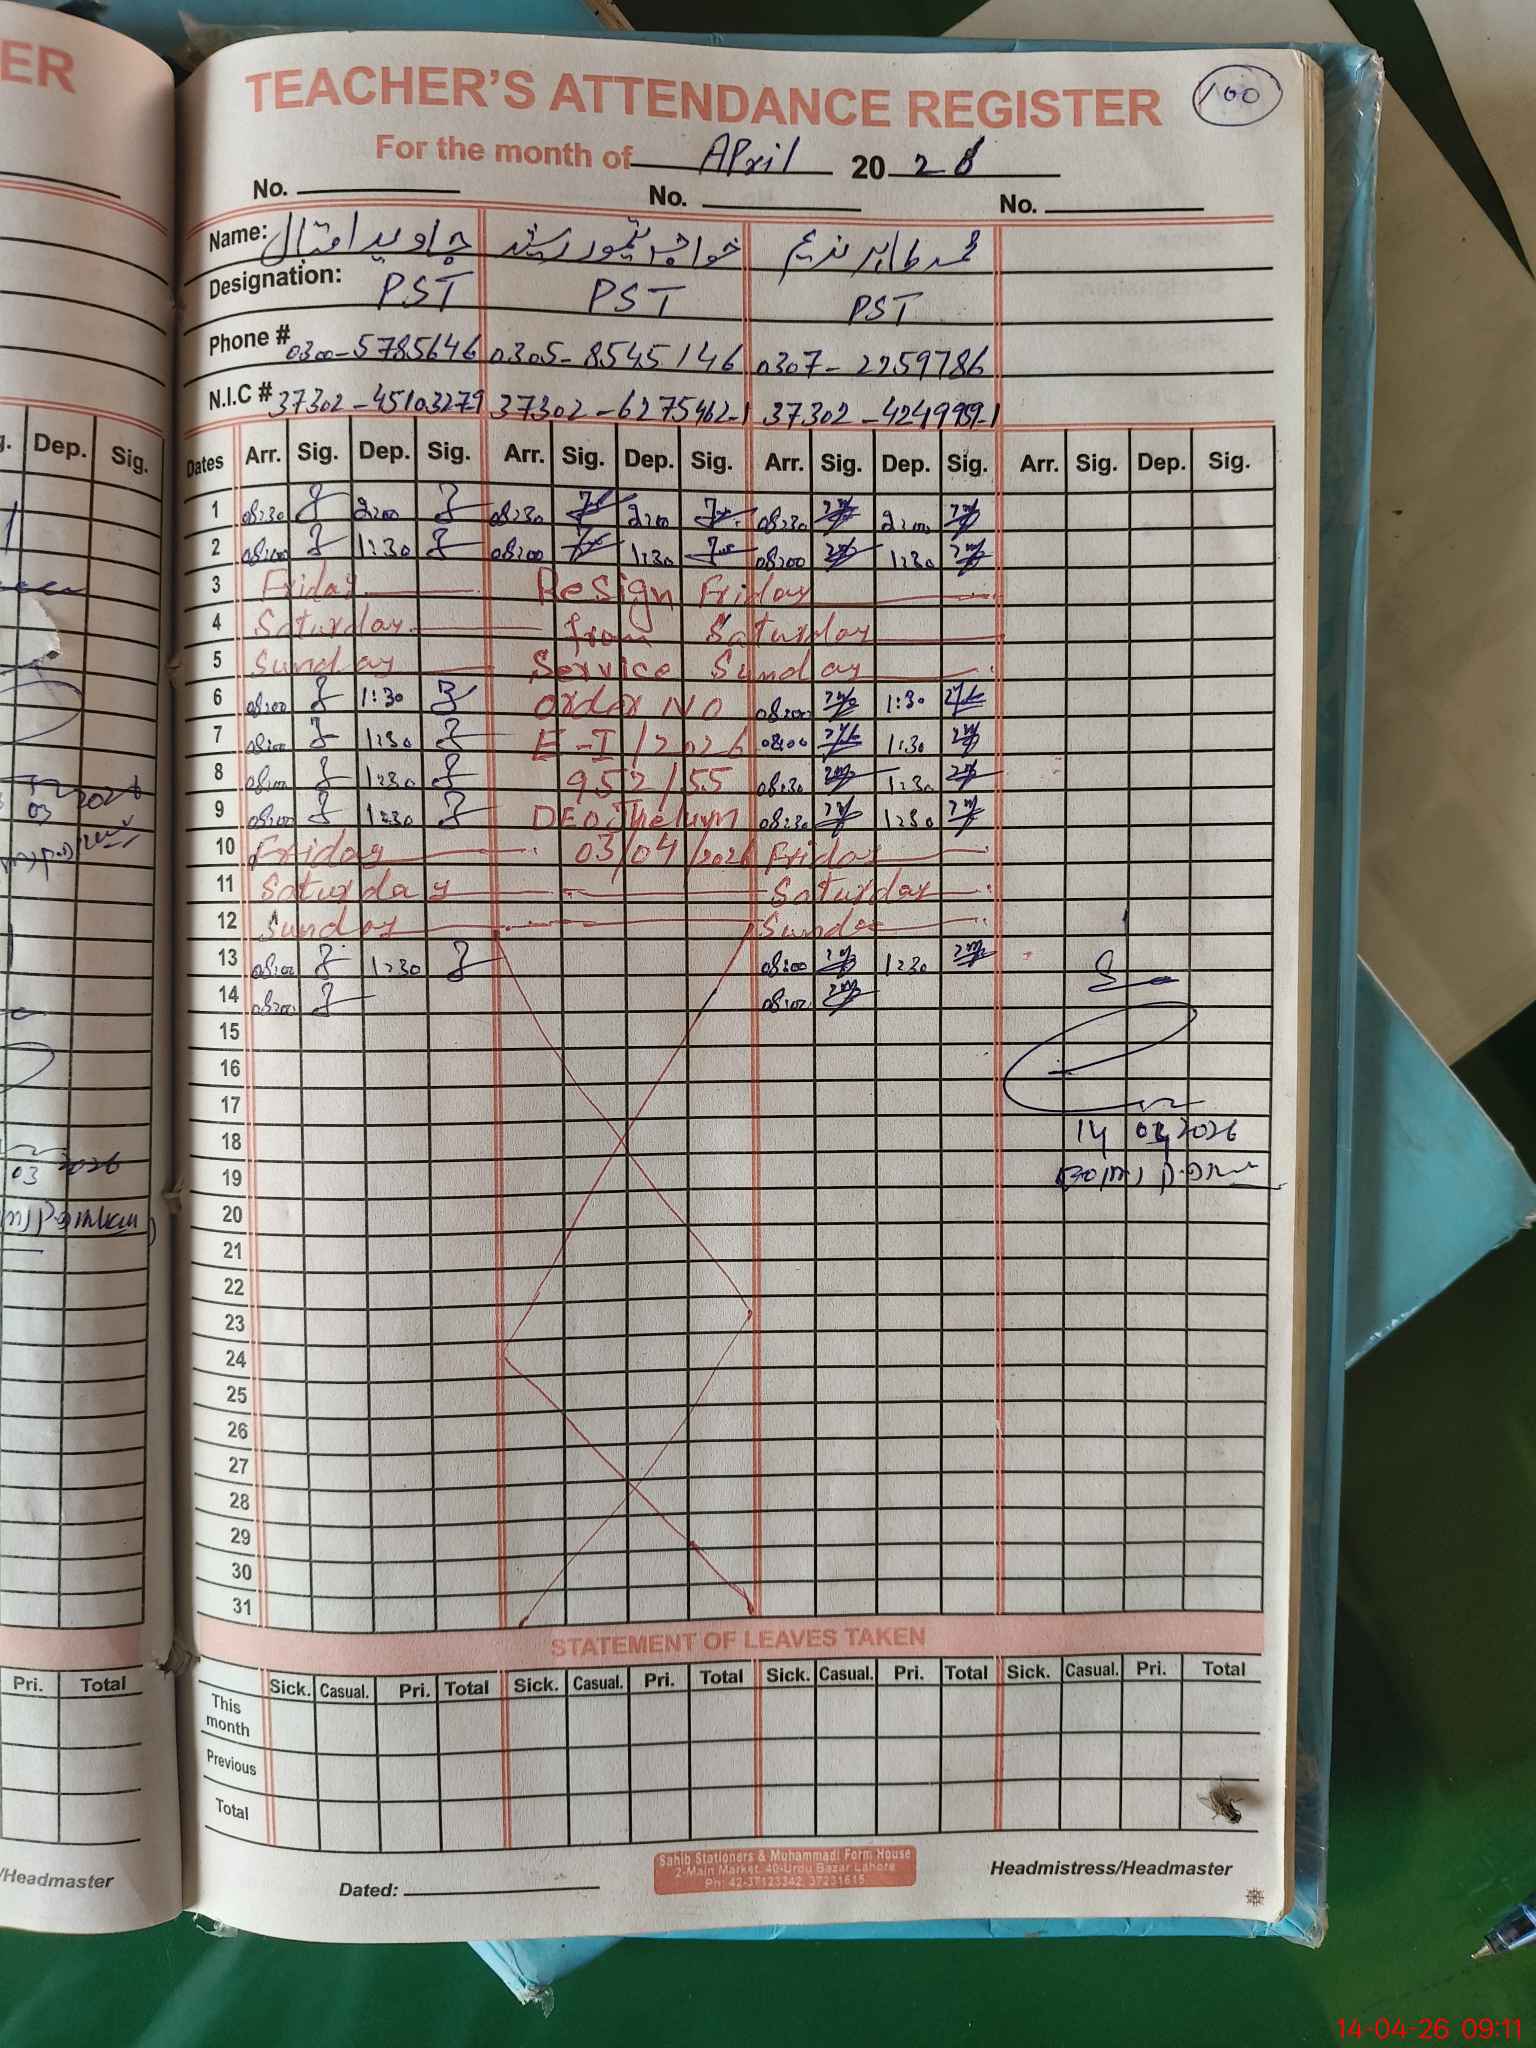 ER
TEACHER'S ATTENDANCE REGISTER
100
For the month of April 2026
No. No. No.
Name: جاوید اقبال خواجہ تیمور رشید محمد طاہر ندیم
Designation: PST PST PST
Phone # 0300-5785646 0305-8545146 0307-2259786
N.I.C # 37302-45103279 37302-6275462-1 37302-424999-1
Dep. Sig.
Dates Arr. Sig. Dep. Sig. Arr. Sig. Dep. Sig. Arr. Sig. Dep. Sig. Arr. Sig. Dep. Sig.
1 08:30 2:00 08:30 2:00 08:30 2:00
2 08:00 1:30 08:00 1:30 08:00 1:30
3 Friday Resign Friday
4 Saturday from Saturday
5 Sunday Service Sunday
6 08:00 1:30 order NO 08:00 1:30
7 08:00 1:30 E-I/2026 08:00 1:30
8 08:00 1:30 952/55 08:30 1:30
9 08:00 1:30 DEO Jhelum 08:30 1:30
10 Friday 03/04/2026 Friday
11 Saturday Saturday
12 Sunday Sunda
13 08:00 1:30 08:00 1:30
14 08:00 08:00
15
16
17
18 14 04 2026
19
20
21
22
23
24
25
26
27
28
29
30
31
03 2026
03 2026
STATEMENT OF LEAVES TAKEN
Pri. Total
Sick. Casual. Pri. Total Sick. Casual. Pri. Total Sick. Casual. Pri. Total Sick. Casual. Pri. Total
This month
Previous
Total
/Headmaster
Dated:
Sahib Stationers & Muhammadi Form House
2-Main Market, 40-Urdu Bazar Lahore
Ph: 42-37123342, 37231615
Headmistress/Headmaster
14-04-26 09:11